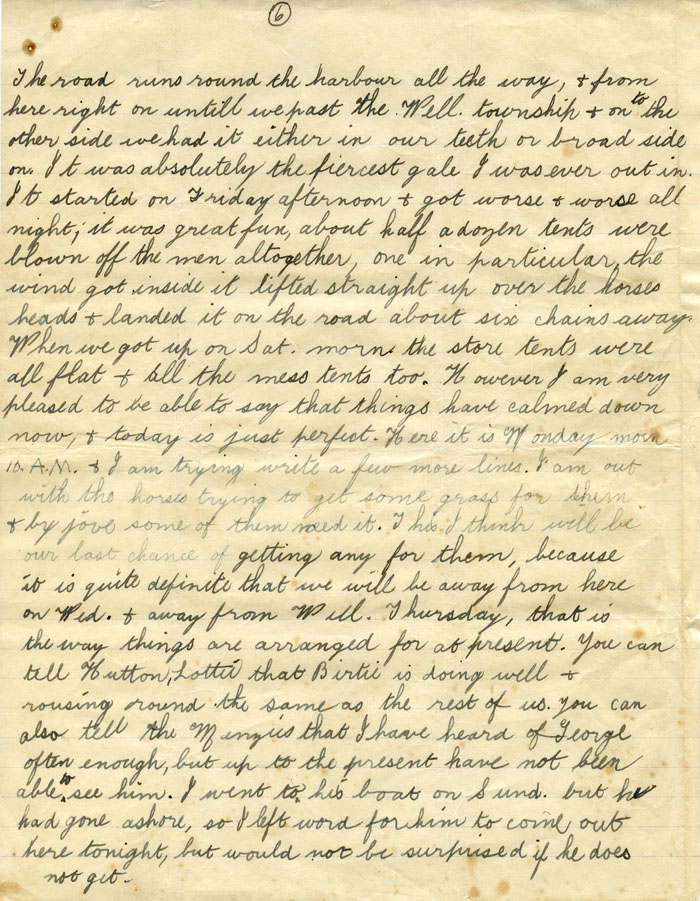 6
The road runs round the harbour all the way, & from
here right on untill we past the Well. township & on to the
other side we had it either in our teeth or broad side
on. It was absolutely the fiercest gale I was ever out in.
It started on Friday afternoon & got worse & worse all
night; it was great fun, about half a dozen tents were
blown off the men altogether, one in particular, the
wind got inside it lifted straight up over the horses
heads & landed it on the road about six chains away.
When we got up on Sat. morn. the store tents were
all flat & all the mess tents too. However I am very
pleased to be able to say that things have calmed down
now, & today is just perfect. Here it is Monday morn
10. A.M. & I am trying write a few more lines. I am out
with the horses trying to get some grass for them
& by jove some of them need it. This I think will be
our last chance of getting any for them, because
it is quite definite that we will be away from here
on Wed. & away from Well. Thursday, that is
the way things are arranged for at present. You can
tell Hutton, Lottie that Birtie is doing well &
rousing round the same as the rest of us. You can
also tell the Menzies that I have heard of George
often enough, but up to the present have not been
able to see him. I went to his boat on Sund. but he
had gone ashore, so I left word for him to come out
here tonight, but would not be surprised if he does
not get.